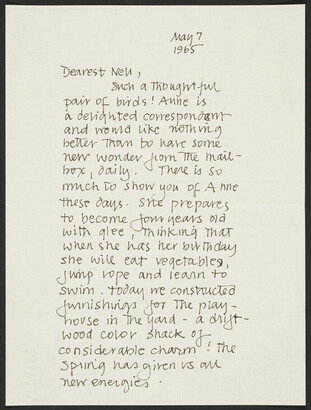 May 7
1965
Dearest Nell,
Such a thoughtful
pair of birds! Anne is
a delighted correspondent
and would like nothing
better than to have some
new wonder from the mail-
box, daily. There is so
much to show you of Anne
these days. She prepares
to become four years old
with glee, thinking that
when she has her birthday
she will eat vegetables,
jump rope and learn to
swim. Today we constructed
furnishings for the play-
house in the yard - a drift-
wood color shack of
considerable charm! The
Spring has given us all
new energies.